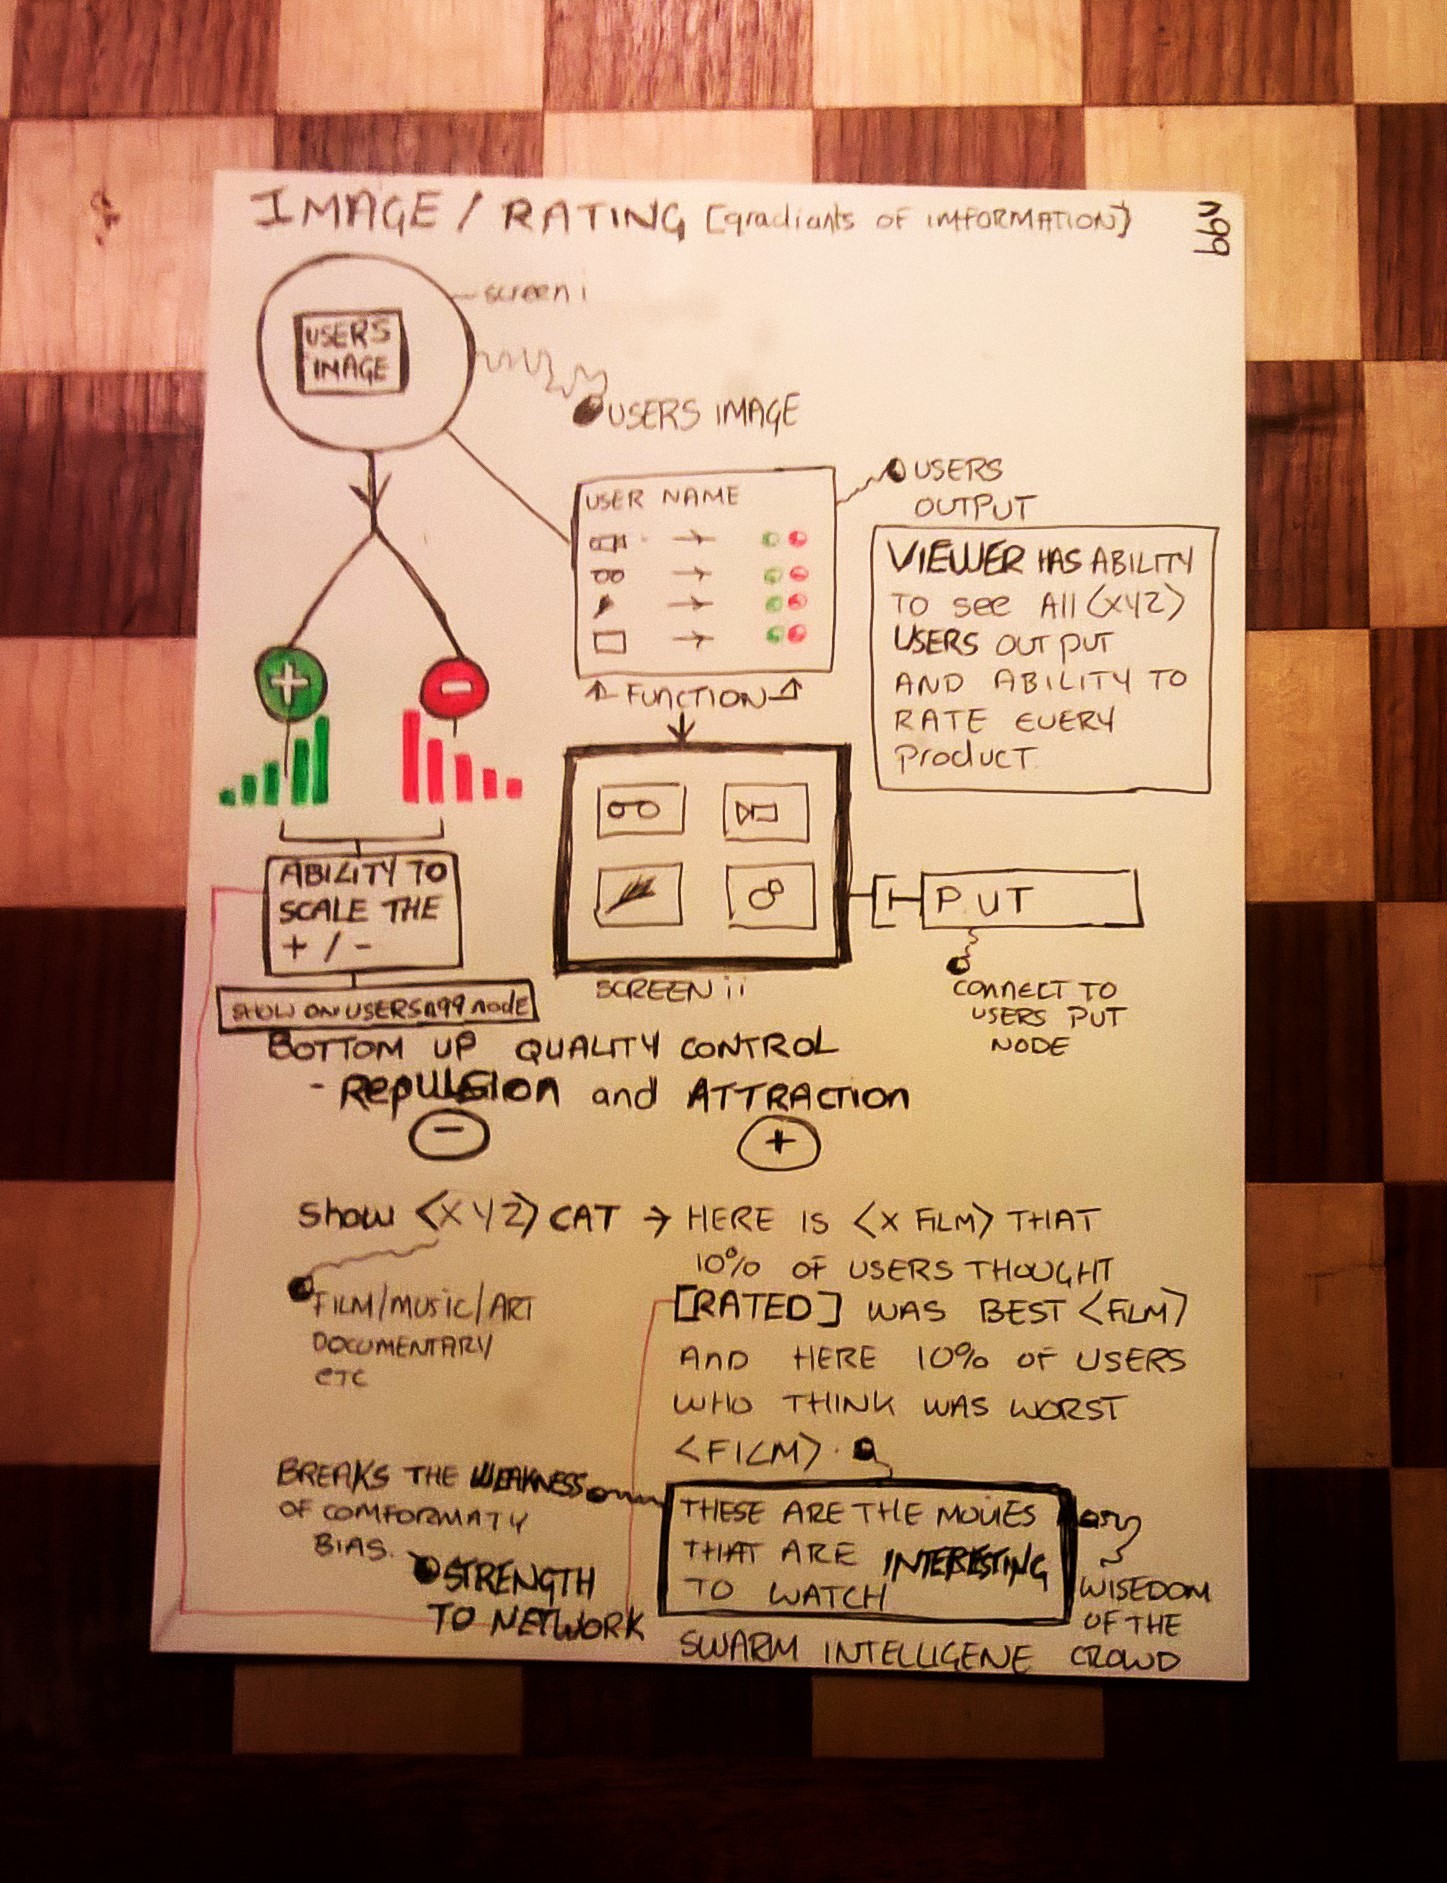 IMAGE / RATING [gradiants of IMFORMATION]
n99
screen i
USERS
IMAGE
USERS IMAGE
USERS
OUTPUT
USER NAME
VIEWER HAS ABILITY
TO see All <XYZ>
USERS OUT PUT
AND ABILITY TO
RATE EVERY
Product.
FUNCTION
+
-
ABILITY TO
SCALE THE
+ / -
SHOW ON USERS n99 node
PUT
SCREEN ii
CONNECT TO
USERS PUT
NODE
BOTTOM UP QUALITY CONTROL
- Repulsion and ATTRACTION
- +
Show <XYZ> CAT → HERE IS <X FILM> THAT
10% OF USERS THOUGHT
[RATED] WAS BEST <FILM>
AND HERE 10% OF USERS
WHO THINK WAS WORST
<FILM>.
FILM/MUSIC/ART
DOCUMENTARY
ETC
BREAKS THE WEAKNESS
OF COMFORMATY
BIAS.
STRENGTH
TO NETWORK
THESE ARE THE MOVIES
THAT ARE INTERESTING
TO WATCH
WISEDOM
OF THE
CROWD
SWARM INTELLIGENE